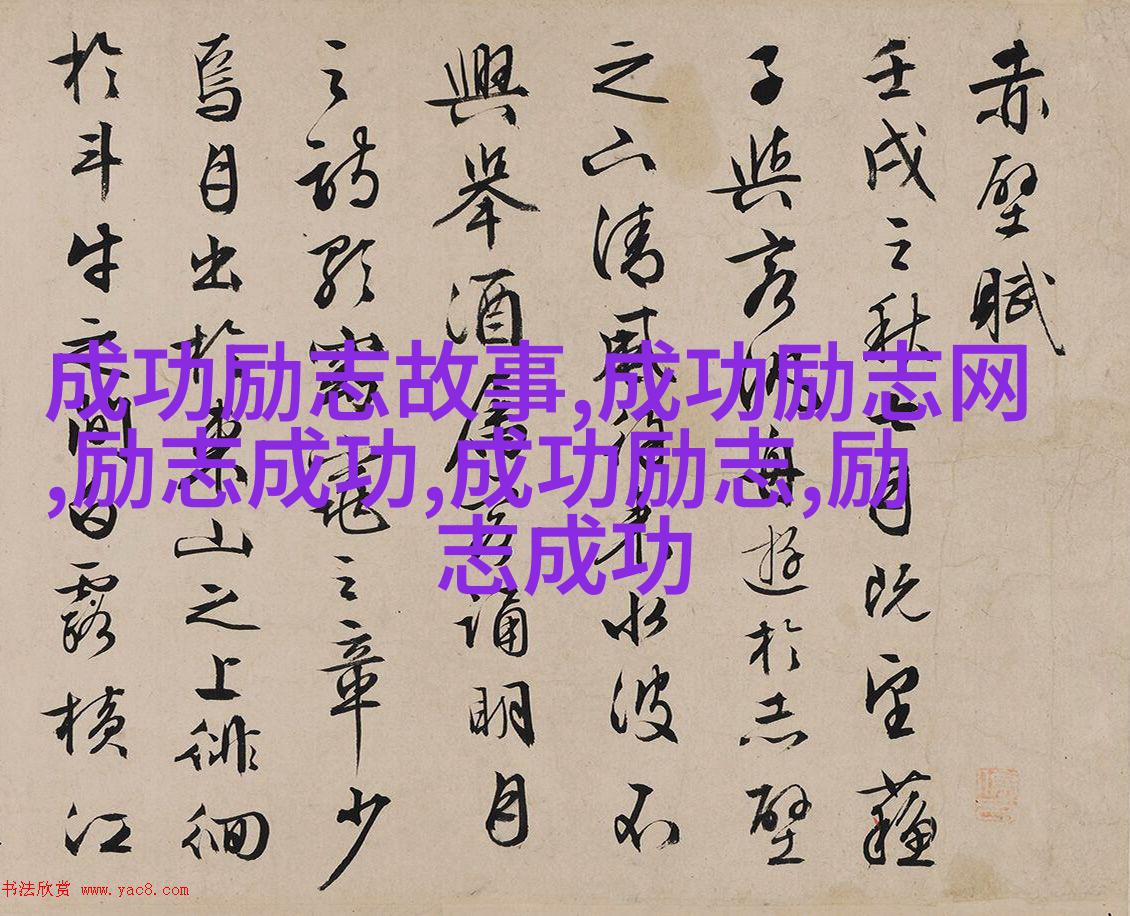 赤壁賦
壬戌之秋七月既望蘇
子與客泛舟遊於赤壁
之下清風徐來水波不
興舉酒屬客誦明月
之詩歌窈窕之章少
焉月出於東山之上徘徊
於斗牛之間白露橫江
成功励志故事,成功励志网
,励志成功,成功励志,励
志成功
书法欣赏 www.yac8.com